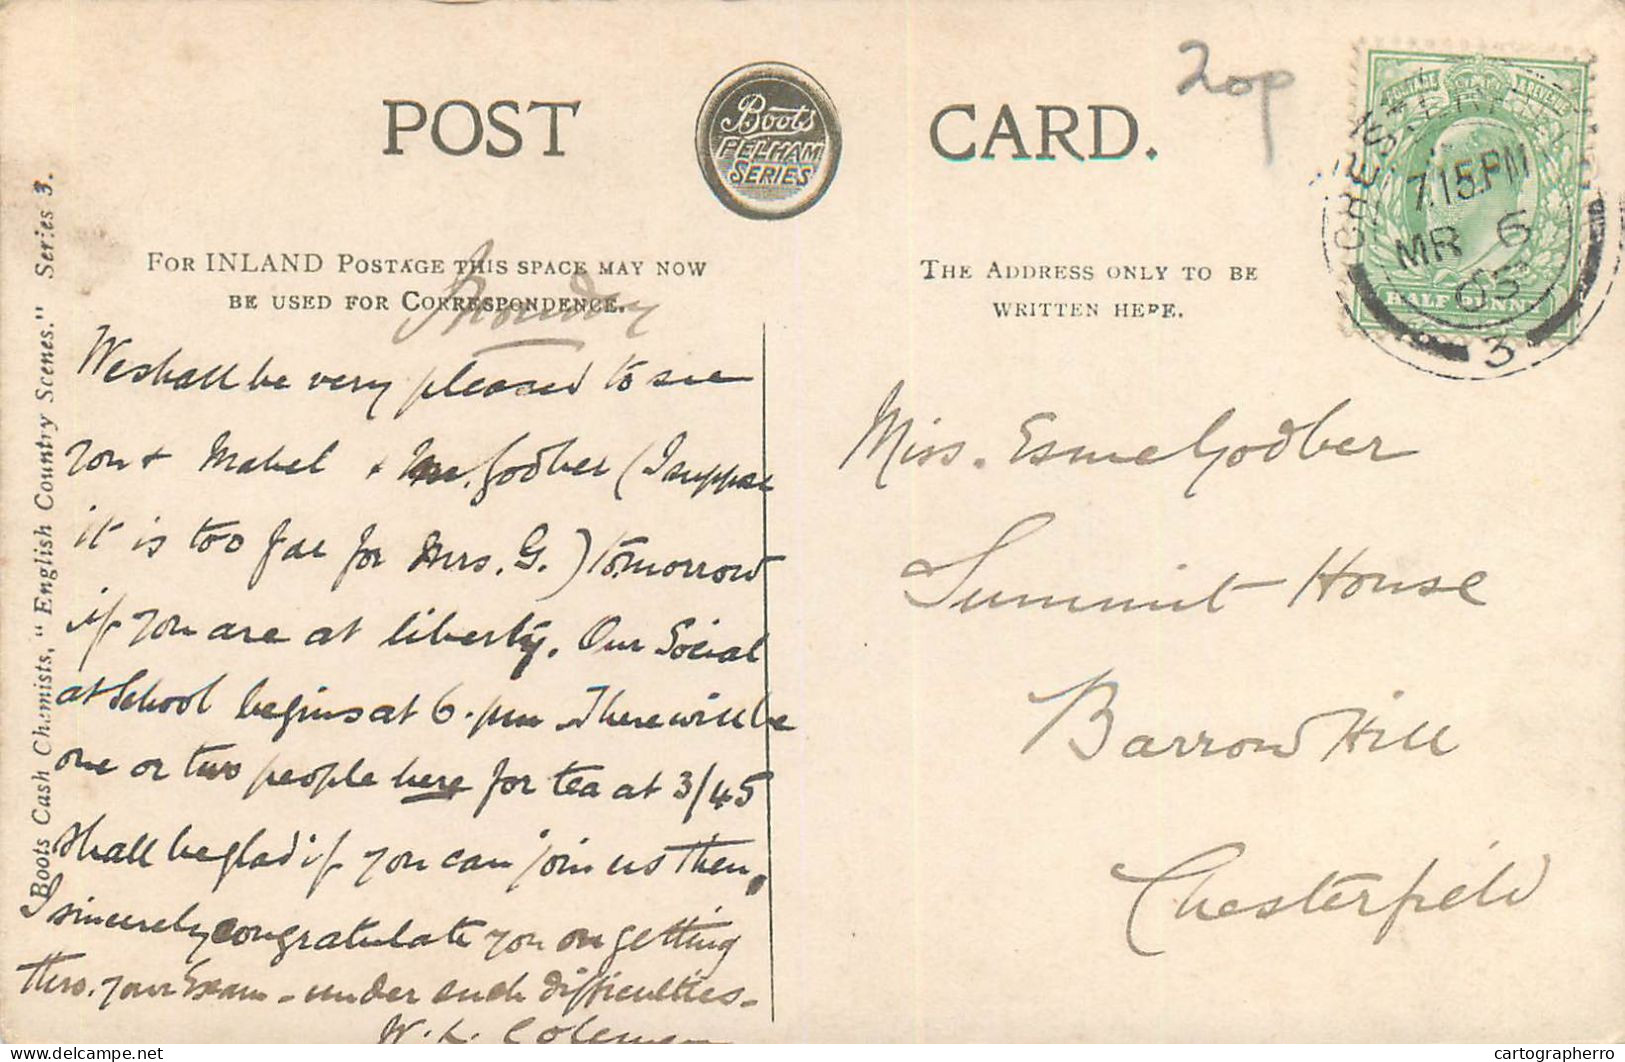 POST CARD.
Boots
PELHAM
SERIES
20p
POSTAGE REVENUE
CHESTERFIELD
7.15.PM
MR 6
05
3
HALF PENNY
FOR INLAND POSTAGE THIS SPACE MAY NOW
BE USED FOR CORRESPONDENCE.
THE ADDRESS ONLY TO BE
WRITTEN HERE.
Boots Cash Chemists, "English Country Scenes." Series 3.
Monday
We shall be very pleased to see
you & Mabel & Mr. Godber (I suppose
it is too far for Mrs. G.) tomorrow
if you are at liberty. Our Social
at School begins at 6. pm There will be
one or two people here for tea at 3/45
Shall be glad if you can join us then.
I sincerely congratulate you on getting
thro. your Exam - under such difficulties -
W. L. Coleman
Miss. Esme Godber
Summit House
Barrow Hill
Chesterfield
delcampe.net
cartographerro